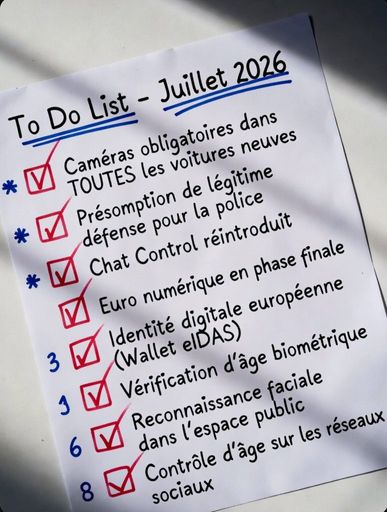 To Do List - Juillet 2026
* Caméras obligatoires dans
TOUTES les voitures neuves
* Présomption de légitime
défense pour la police
* Chat Control réintroduit
Euro numérique en phase finale
3 Identité digitale européenne
(Wallet eIDAS)
1 Vérification d'âge biométrique
6 Reconnaissance faciale
dans l'espace public
8 Contrôle d'âge sur les réseaux
sociaux